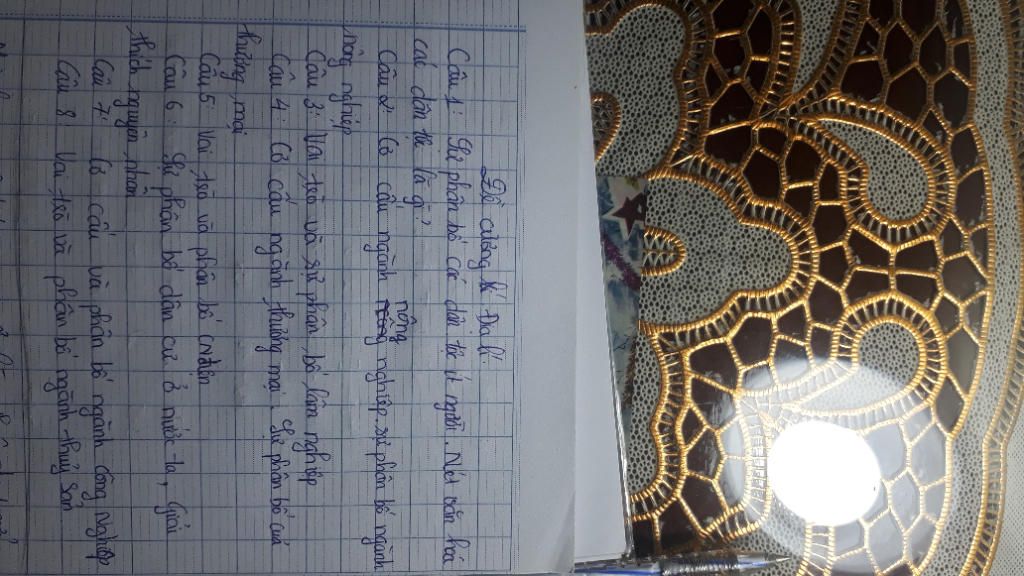 Đề cương Địa lí
Câu 1: Sự phân bố các dân tộc ít người. Nét văn hóa
các dân tộc là gì?
Câu 2: Cơ cấu ngành nông nghiệp, sự phân bố ngành
nông nghiệp
Câu 3: Vai trò và sự phân bố lâm nghiệp
Câu 4: Cơ cấu ngành thương mại. Sự phân bố của
thương mại
Câu 5: Vai trò và phân bố CN điện
Câu 6: Sự phân bố dân cư ở nước ta, Giải
thích nguyên nhân
Câu 7: Cơ cấu và phân bố ngành công nghiệp
Câu 8 Vai trò và phân bố ngành thuỷ sản